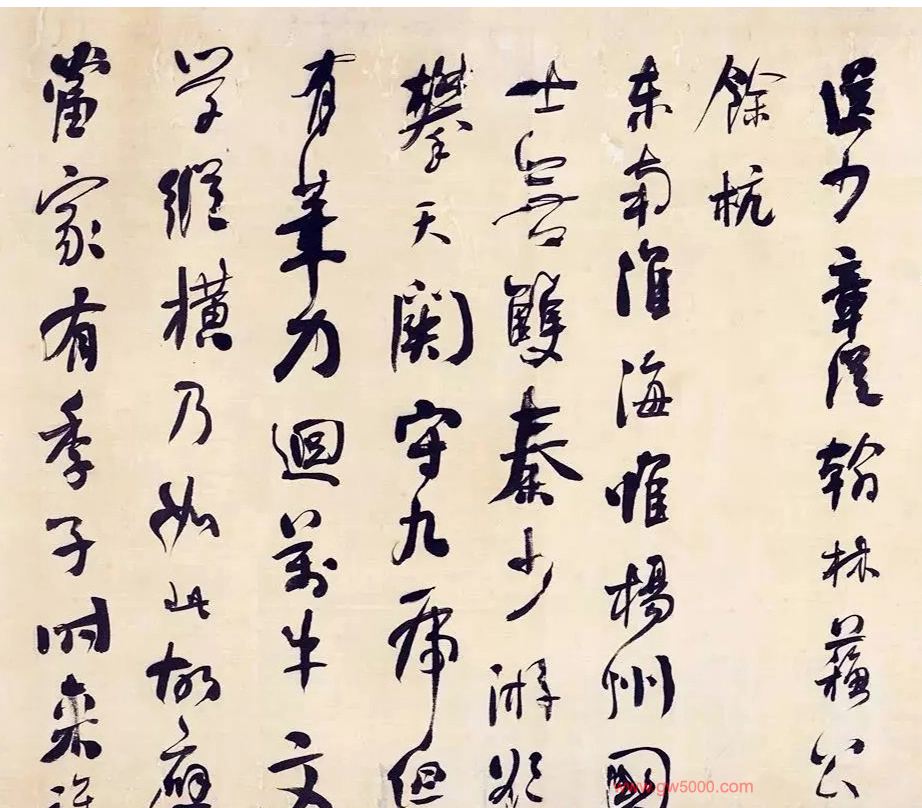 送少章從翰林蘇公
餘杭
東南淮海惟楊州國
士無雙秦少游欲
攀天關守九虎但
有筆力迴萬牛文
學縱橫乃如此故應
當家有季子時來
www.gw5000.com